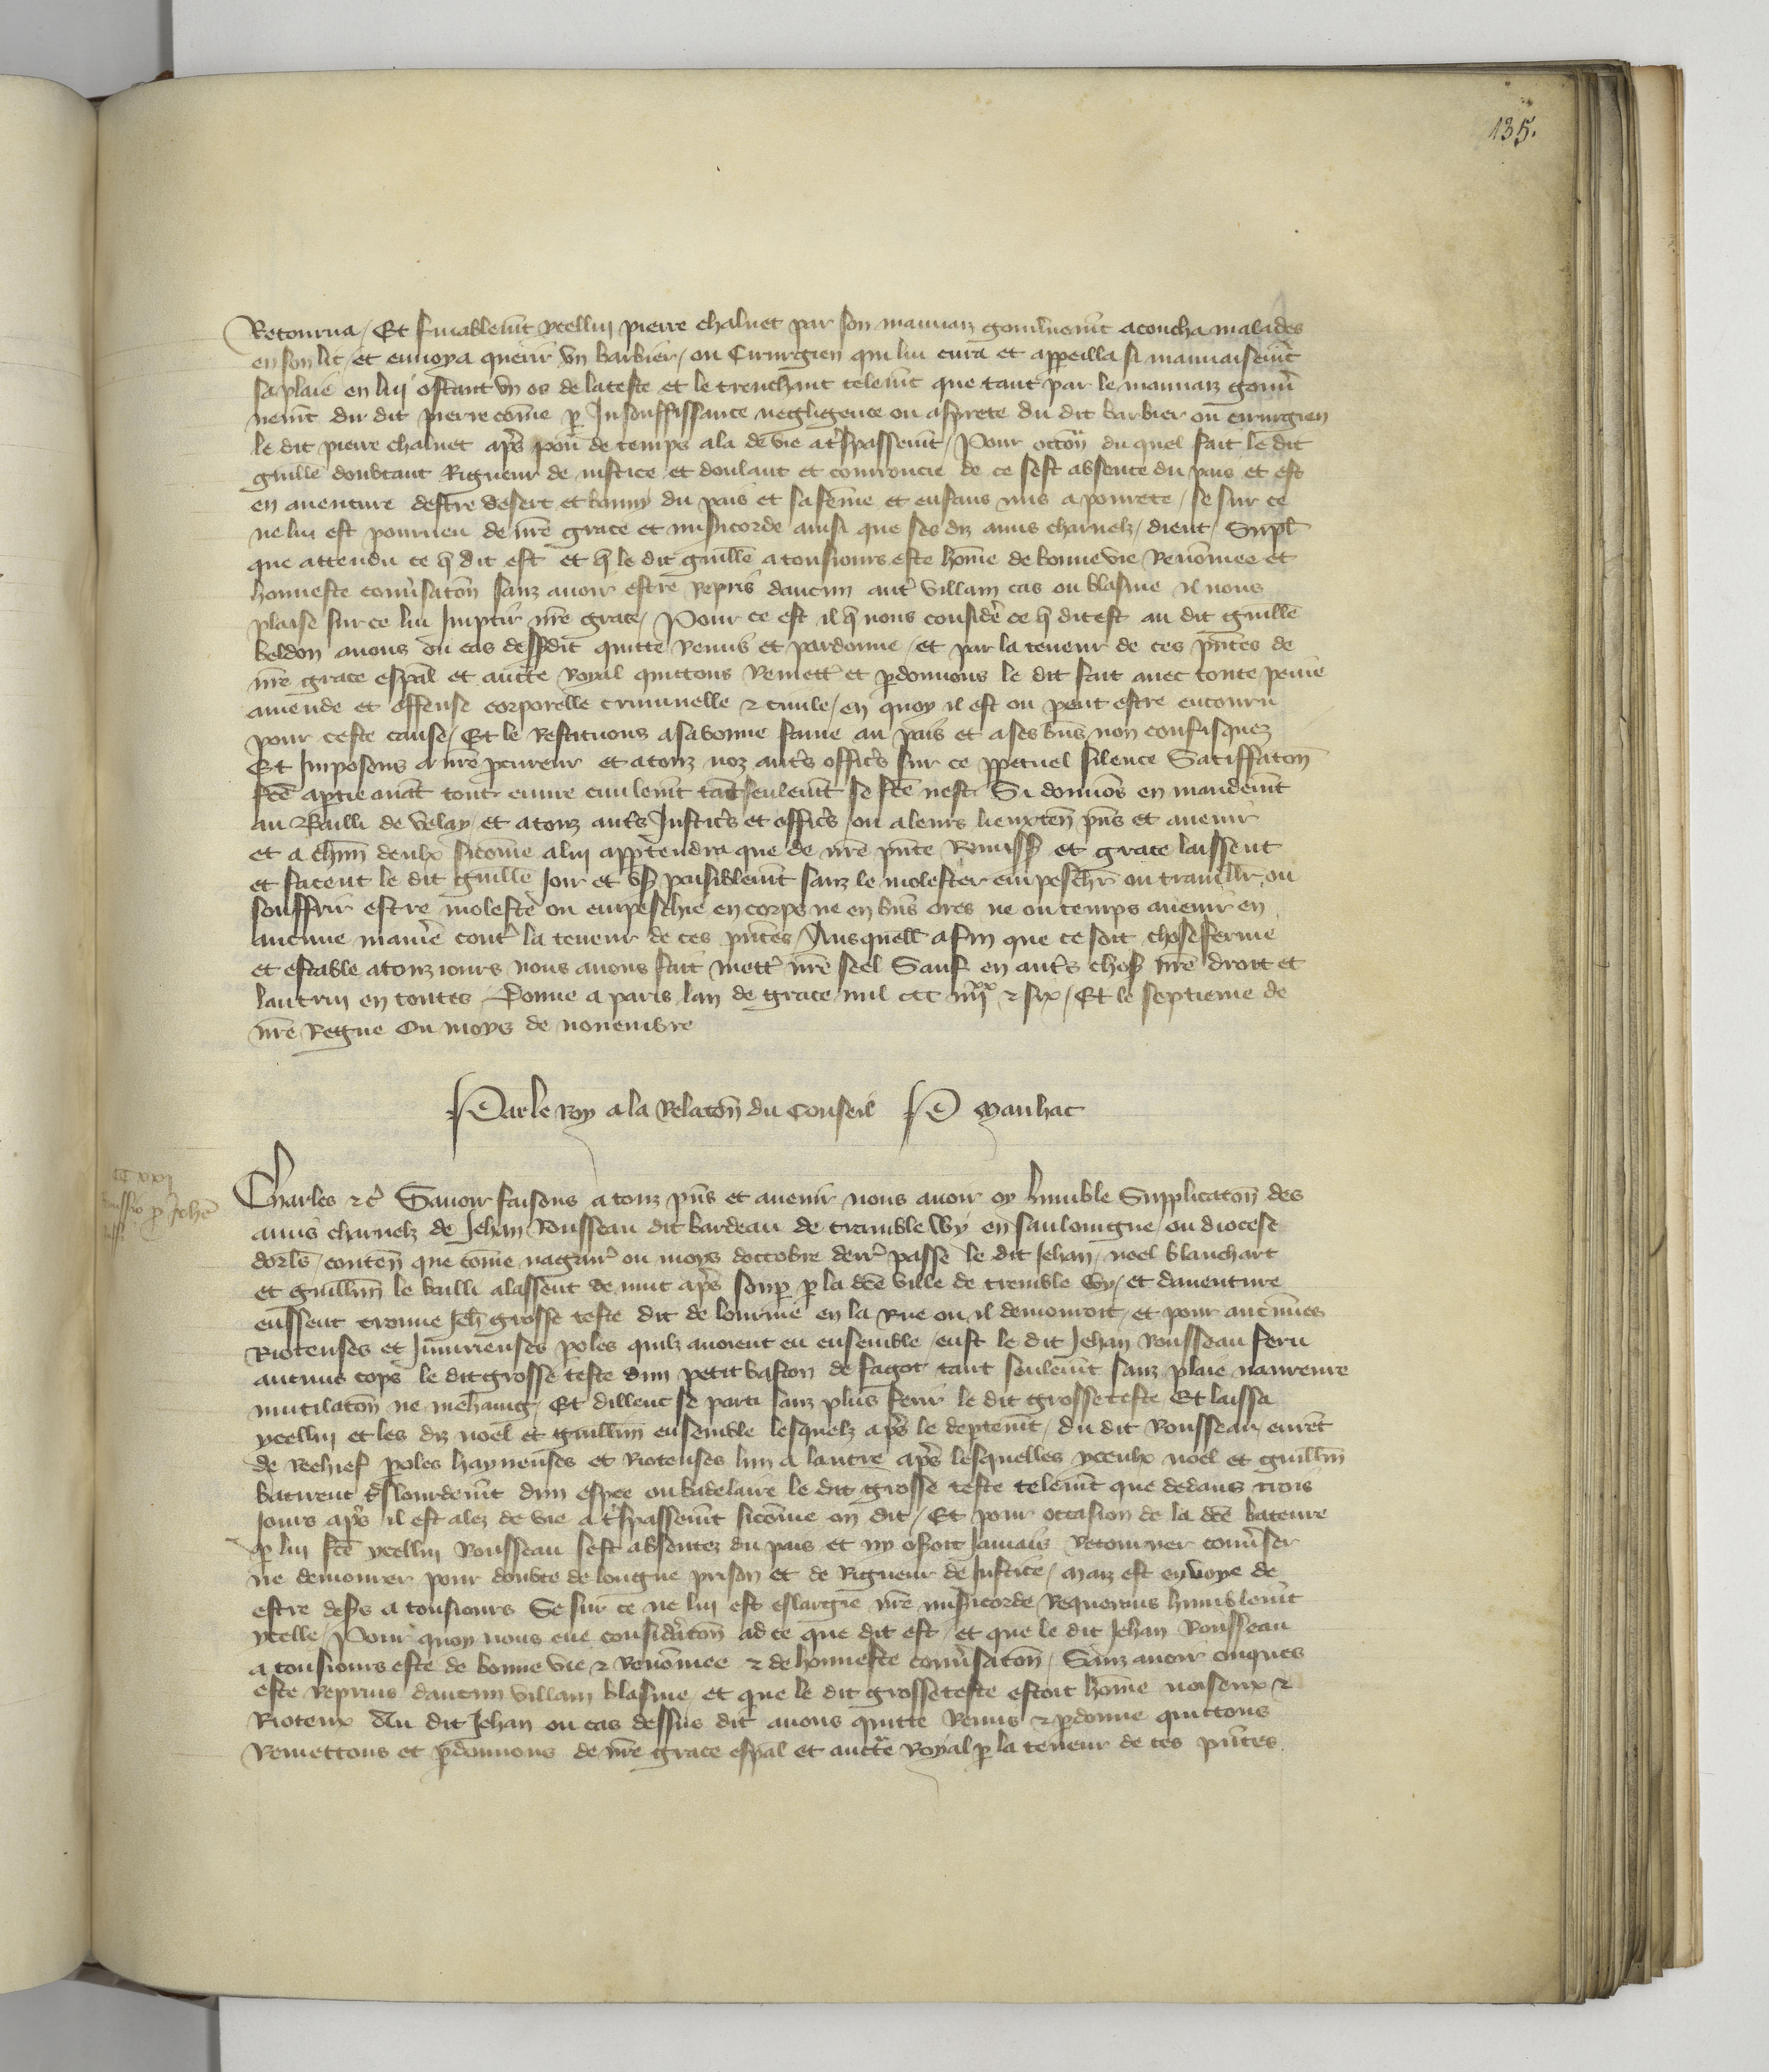 135.
Retourna / Et finablemt ycellui pierre chalvet par son mauvaiz gouvernemt acoucha malades
en son lit / et envoya querir un barbier / ou Cirurgien qui lui cura et appeilla si mauvaisemt
sa plaie en lui ostant un os de la teste et le trenchant telemt que tant par le mauvaiz gouver
nemt du dit pierre come p Insouffissance negligence ou asprete du dit barbier ou cirurgien
le dit pierre chalvet apres pou de temps ala de vie a trespassemt / Pour occon du quel fait le dit
guille doubtant Rigueur de justice et doulant et courroucie de ce sest absente du pais et est
en aventure destre desert et banny du pais et sa feme et enfans mis a povrete / se sur ce
ne lui est pourveu de nre grace et misicorde ainsi que ses diz amis charnelz / dient / Suppl
que attendu ce q dit est et q le dit guille a tousiours este home de bonne vie Renomee et
honneste conversaton sanz avoir estre repris daucun autre villain cas ou blasme il nous
plaise sur ce lui Impartir nre grace / Pour ce est il q nous considere ce q dit est au dit guille
beldon avons ou cas dessusdit quitte Remis et pardonne / et par la teneur de ces pntes de
nre grace espal et aucte Royal quittons Remett et pdonnons le dit fait avec toute peine
amende et offense corporelle criminelle & civile / en quoy il est ou peut estre encouru
pour ceste cause / Et le Restituons a sa bonne fame au pais et a ses bns non confisquez
Et Imposons a nre pcureur et a touz noz autres officrs sur ce ppetuel silence Satiffaton
fce a ptie avat tout euvre civilemt tat seulemt se fce nest Si donnos en mandemt
au Bailli de velay / et a touz autrs Justicrs et officrs / ou a leurs lieuxten pns et avenir
et a chun deulx sicome a lui apptendra que de nre pnte Remiss et grace laissent
et facent le dit guille Joir et user paisiblemt sanz le molester empeschr ou travillr ou
souffrir estre moleste ou empeschie en corps ne en bns ores ne ou temps avenir en
aucune maniere contre la teneur de ces pntes / Ausquell afin que ce soit chose ferme
et estable a touz iours nous avons fait mett nre seel Sauf en autrs chos nre droit et
lautrui en toutes Donne a paris lan de grace mil ccc iiijxx & six / Et le septieme de
nre Regne Ou moys de novembre
Par le Roy a la Relaton du Conseil P Manhac
Charles &c Savoir faisons a touz pns et avenir nous avoir oy humble Supplicaton des
amis charnelz de Jehan Rousseau dit bardeau de tramble Wy en sauloingne / ou diocese
dorls / conten que come nagair ou moys doctobre derr passe le dit Jehan / noel blanchart
et guillmn le bailli alassent de nuit aprs soup p la dce ville de tremble Vy / et daventure
eussent trouve Jeh grosse teste dit de lourme en la Rue ou il demouroit / et pour aucunes
Rioteuses et Iniurieuses poles quilz avoient eu ensemble / eust le dit Jehan Rousseau feru
aucuns cops le dit grosse teste dun petit baston de fagot tant seulemt sanz plaie navreure
mutilaton ne mehaing / Et dillenc se parti sanz plus ferir le dit grosseteste Et laissa
ycellui et les diz noel et guillmn ensemble lesquelz aprs le deptemt / du dit Rousseau / eurет
de Rechief poles hayneuses et Rioteuses lun a lautre aprs lesquelles yceulx noel et guillmn
batirent tslourdemt dun espee ou badelaire le dit grosse teste telemt que dedans trois
Jours aprs il est alez de vie a trespassemt sicome on dit / Et pour occasion de la dce bateure
p lui fce ycellui Rousseau sest absentez du pais et ny oseroit Jamais Retourner converser
ne demourer pour doubte de longue prison et de Rigueur de Justice / maiz est en voye de
estre desrs a tousiours Se sur ce ne lui est eslargie nre misicorde / Requerans humblemt
ycelle / Pour quoy nous eue consideraton ad ce que dit est / et que le dit Jehan Rousseau
a tousiours este de bonne vie & Renomee & de honneste conversaton / Sanz avoir onques
este Reprins daucun villain blasme / et que le dit grosseteste estoit home noiseux &
Rioteux Au dit Jehan ou cas dessus dit avons quitte Remis & pdonne quittons
Remettons et pdonnons de nre grace espal et aucte Royal p la teneur de ces pntes